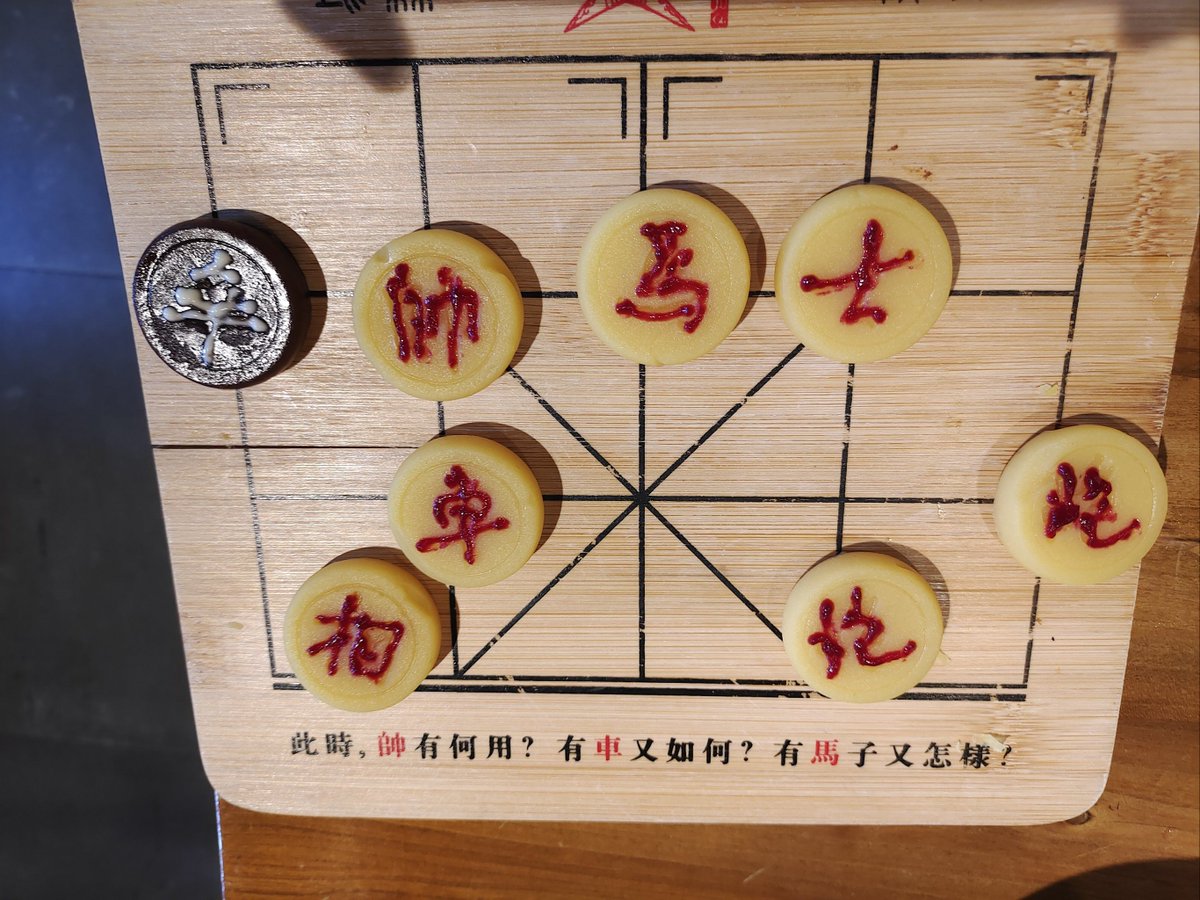 卒 帥 馬 士
車 炮
相 炮
此時,帥有何用?有車又如何?有馬子又怎樣?